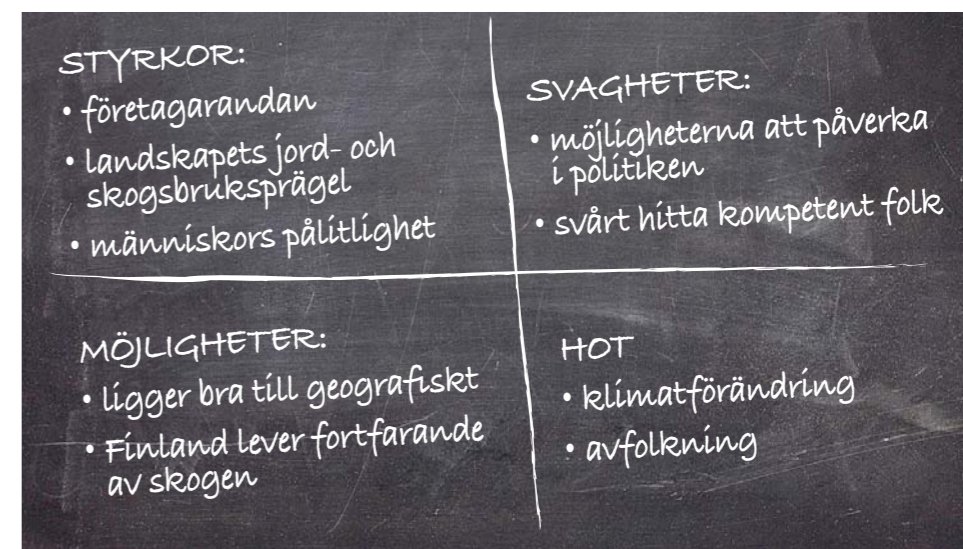 STYRKOR:
• företagarandan
• landskapets jord- och
skogsbruksprägel
• människors pålitlighet
SVAGHETER:
• möjligheterna att påverka
i politiken
• svårt hitta kompetent folk
MÖJLIGHETER:
• ligger bra till geografiskt
• Finland lever fortfarande
av skogen
HOT
• klimatförändring
• avfolkning